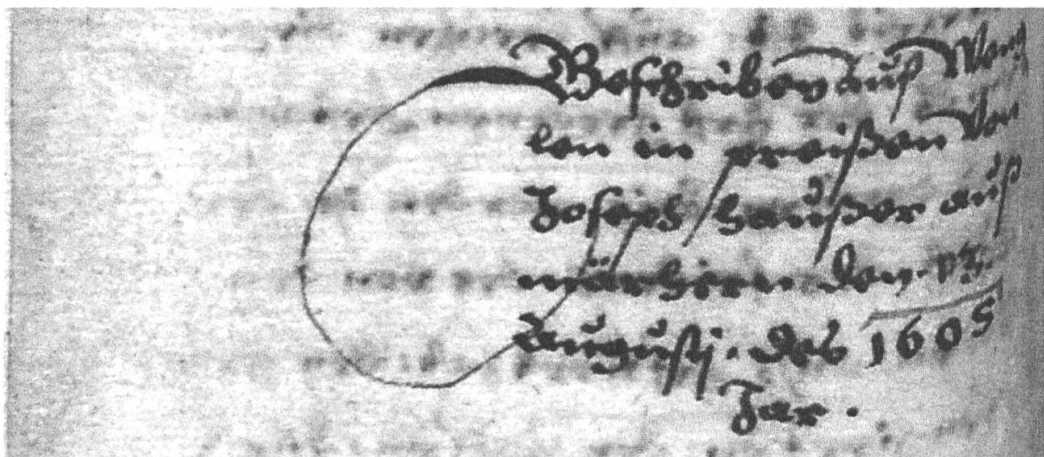 Beschriben auß Weng
len in preissen Von
Joseph haußer auß
märhern den
Augustj. des 1605
Jar.